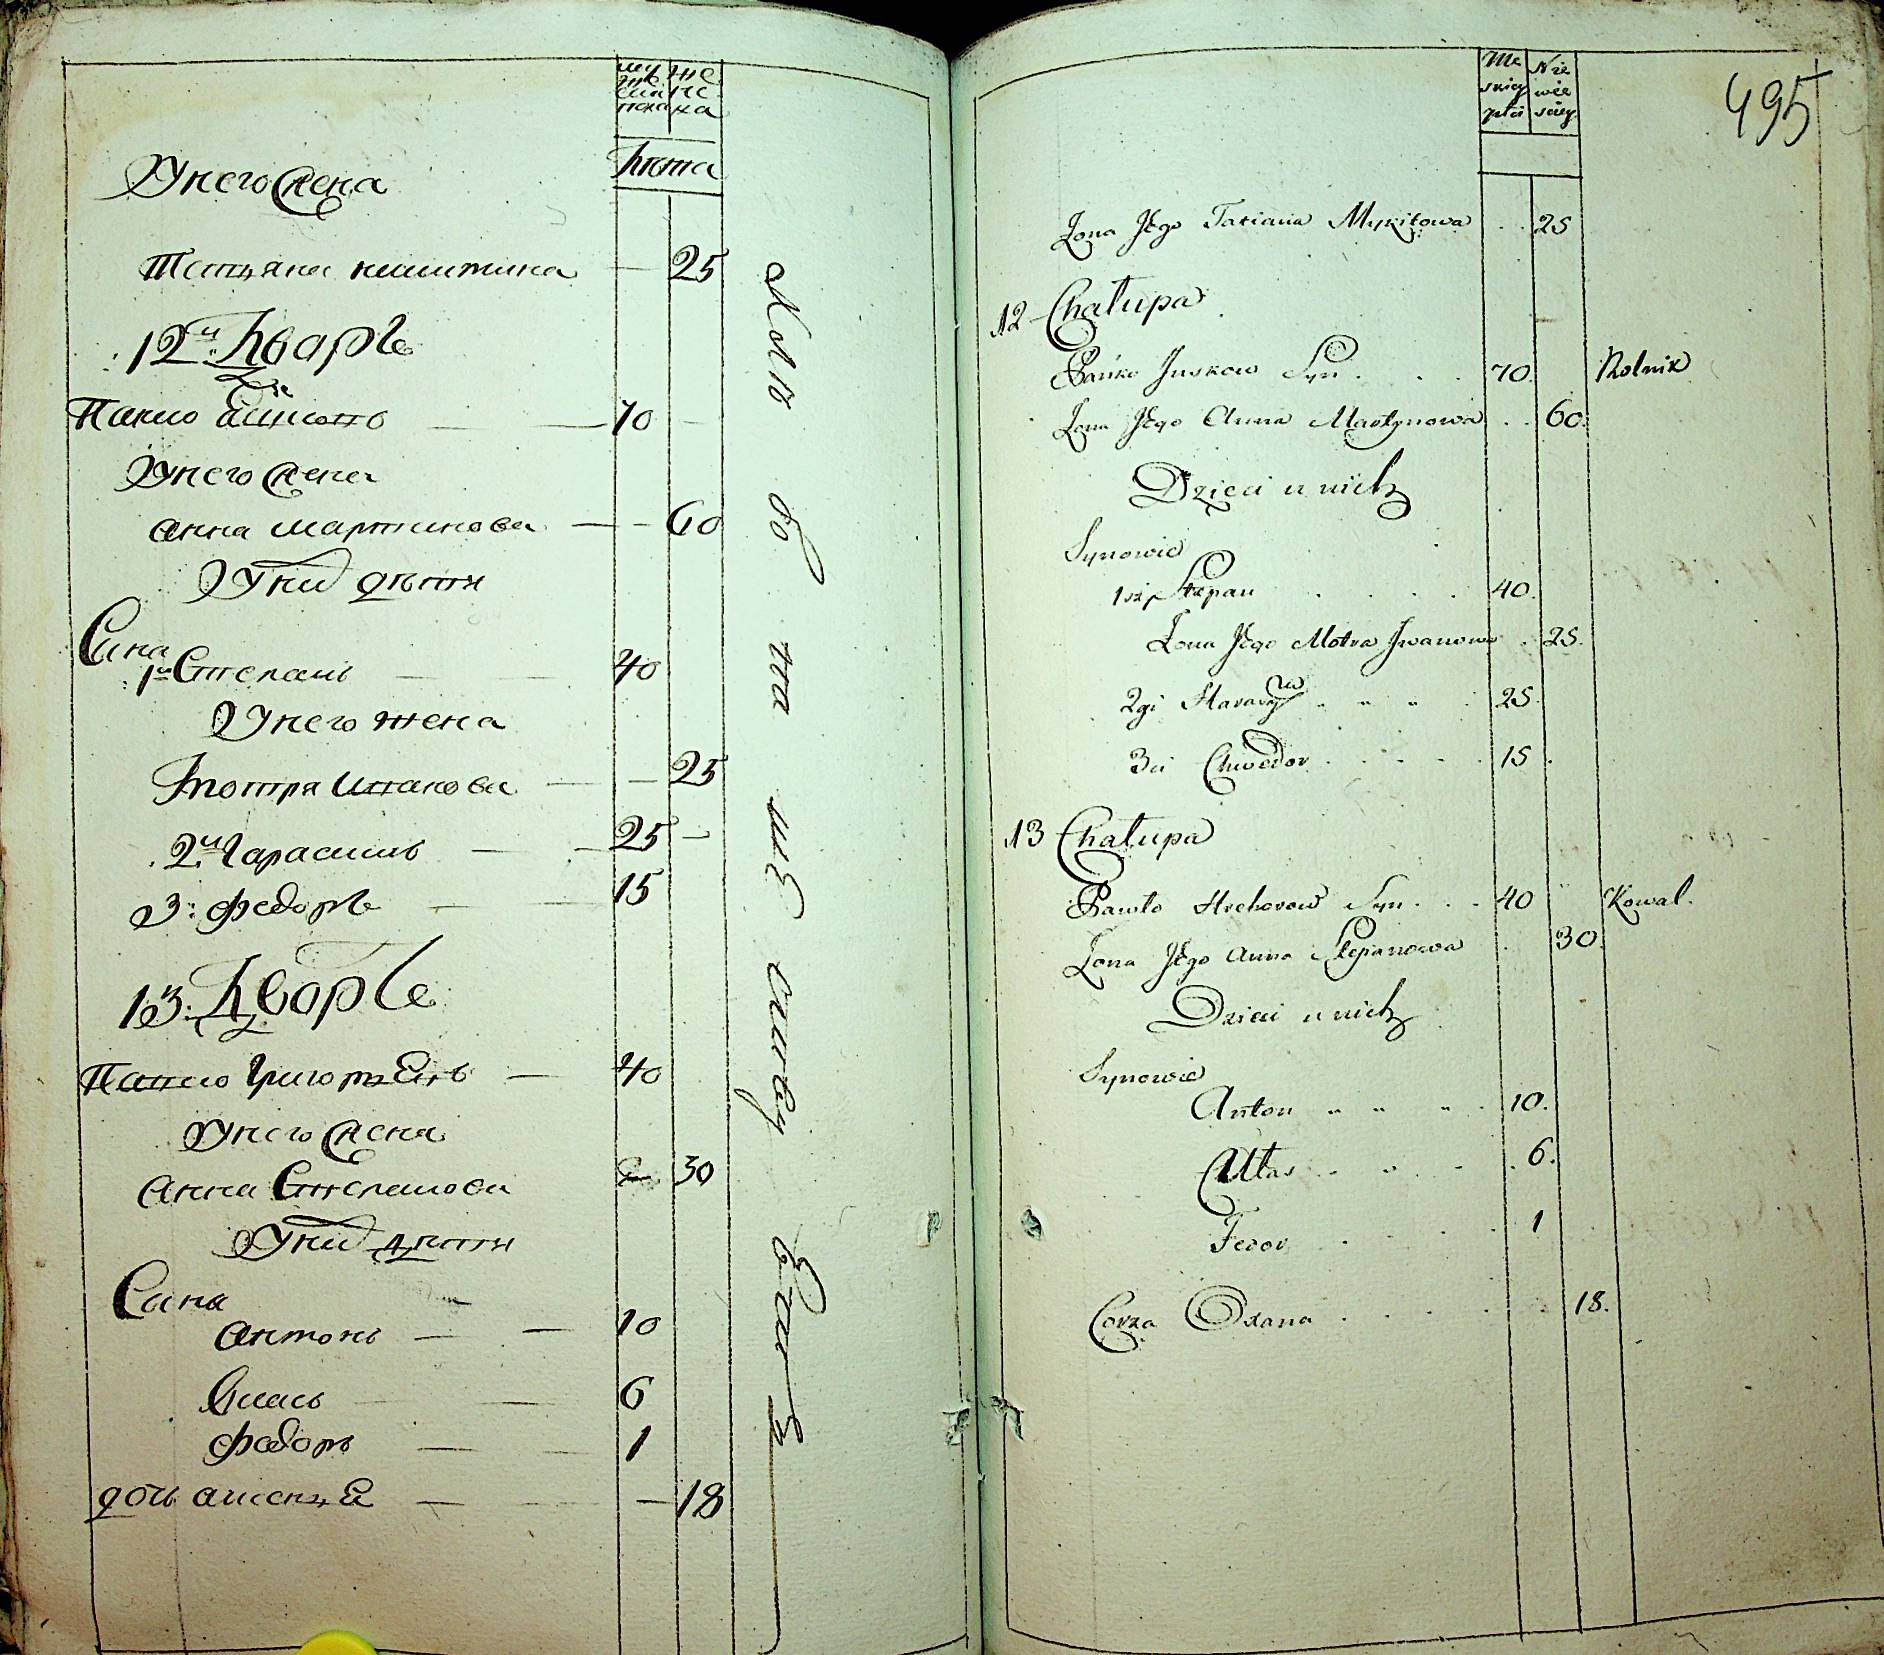 мужеска пола
женска
Лѣта
У него жена
Татияна никитина — 25
12й: Дворъ
70
У него жена
анна мартинова — 60
У них дѣти
Сина
1й Степанъ — 40
У него жена
мотря иванова — 25
2й Гарасимъ — 25 —
3: Федоръ — 15
13: Дворъ
Павло Григорьевъ — 40
У него жена
анна Степанова — 30
У них дѣти
Сина
антонъ — 10
Власъ — 6
Федоръ — 1
дочь — 18
Męskiey płci
Niewieściey
495
Żona Jego Tatiana Mykitowa . . 25
12 Chałupa
Juskow Syn . . . 70. Rolnik
Żona Jego Anna Martynowa . . 60.
Dzieci u nich
Synowie
1szy Stepan . . . . 40.
Żona Jego Motra Jwanowa . 25.
2gi Harasym . . . . 25.
3ci Chwedor . . . . . 15.
13 Chałupa
Pawło Hrehorow Syn . . . 40 Kowal.
Żona Jego Anna Stepanowa . 30.
Dzieci u nich
Synowie
Anton . . . . 10.
Ułas . . . . 6.
Fedor . . . . 1
Corka Oxana . . . . 18.